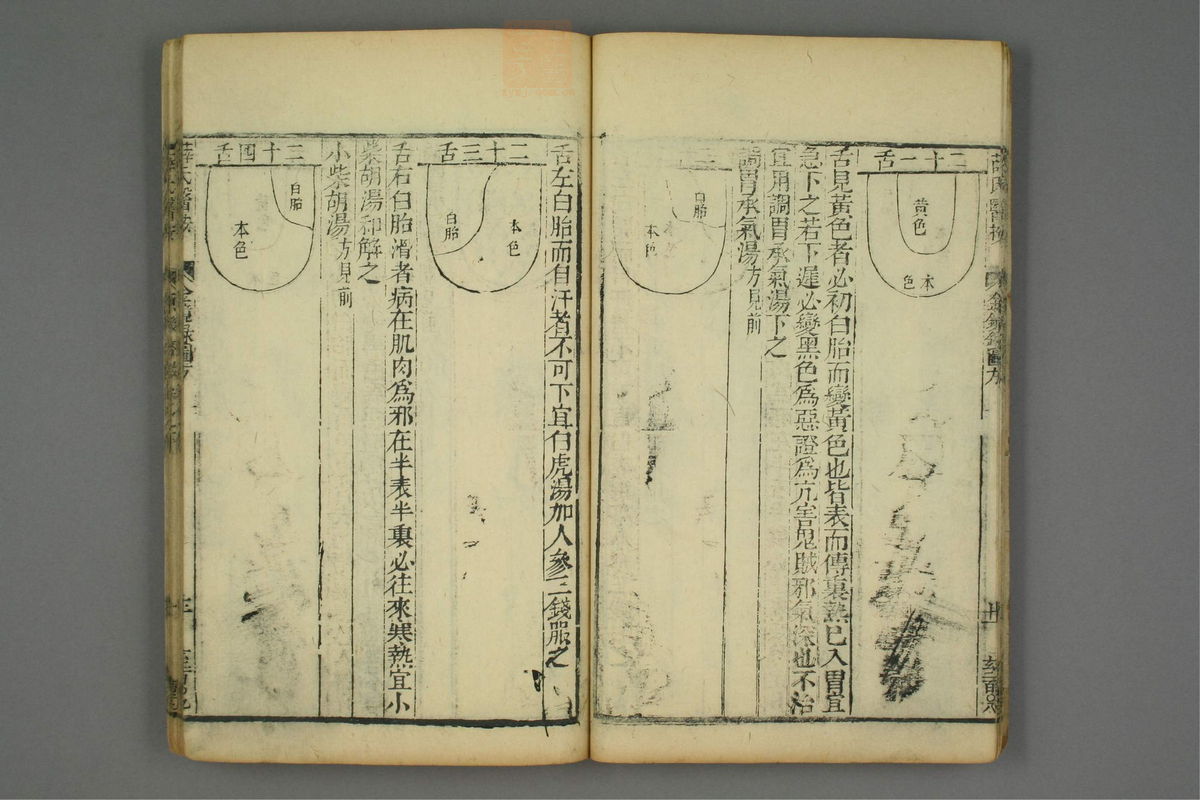 二十一舌
黃色
本色
舌見黃色者必初白胎而變黃色也皆表而傳裏熱已入胃宜
急下之若下遲必變黑色爲惡證爲亢害鬼賊邪氣深也不治
宜用調胃承氣湯下之
調胃承氣湯方見前
二
白胎
本色
舌左白胎而自汗者不可下宜白虎湯加人參三錢服之
二十三舌
本色
白胎
舌右白胎滑者病在肌肉爲邪在半表半裏必往來寒熱宜小
柴胡湯和解之
小柴胡湯方見前
二十四舌
白胎
本色